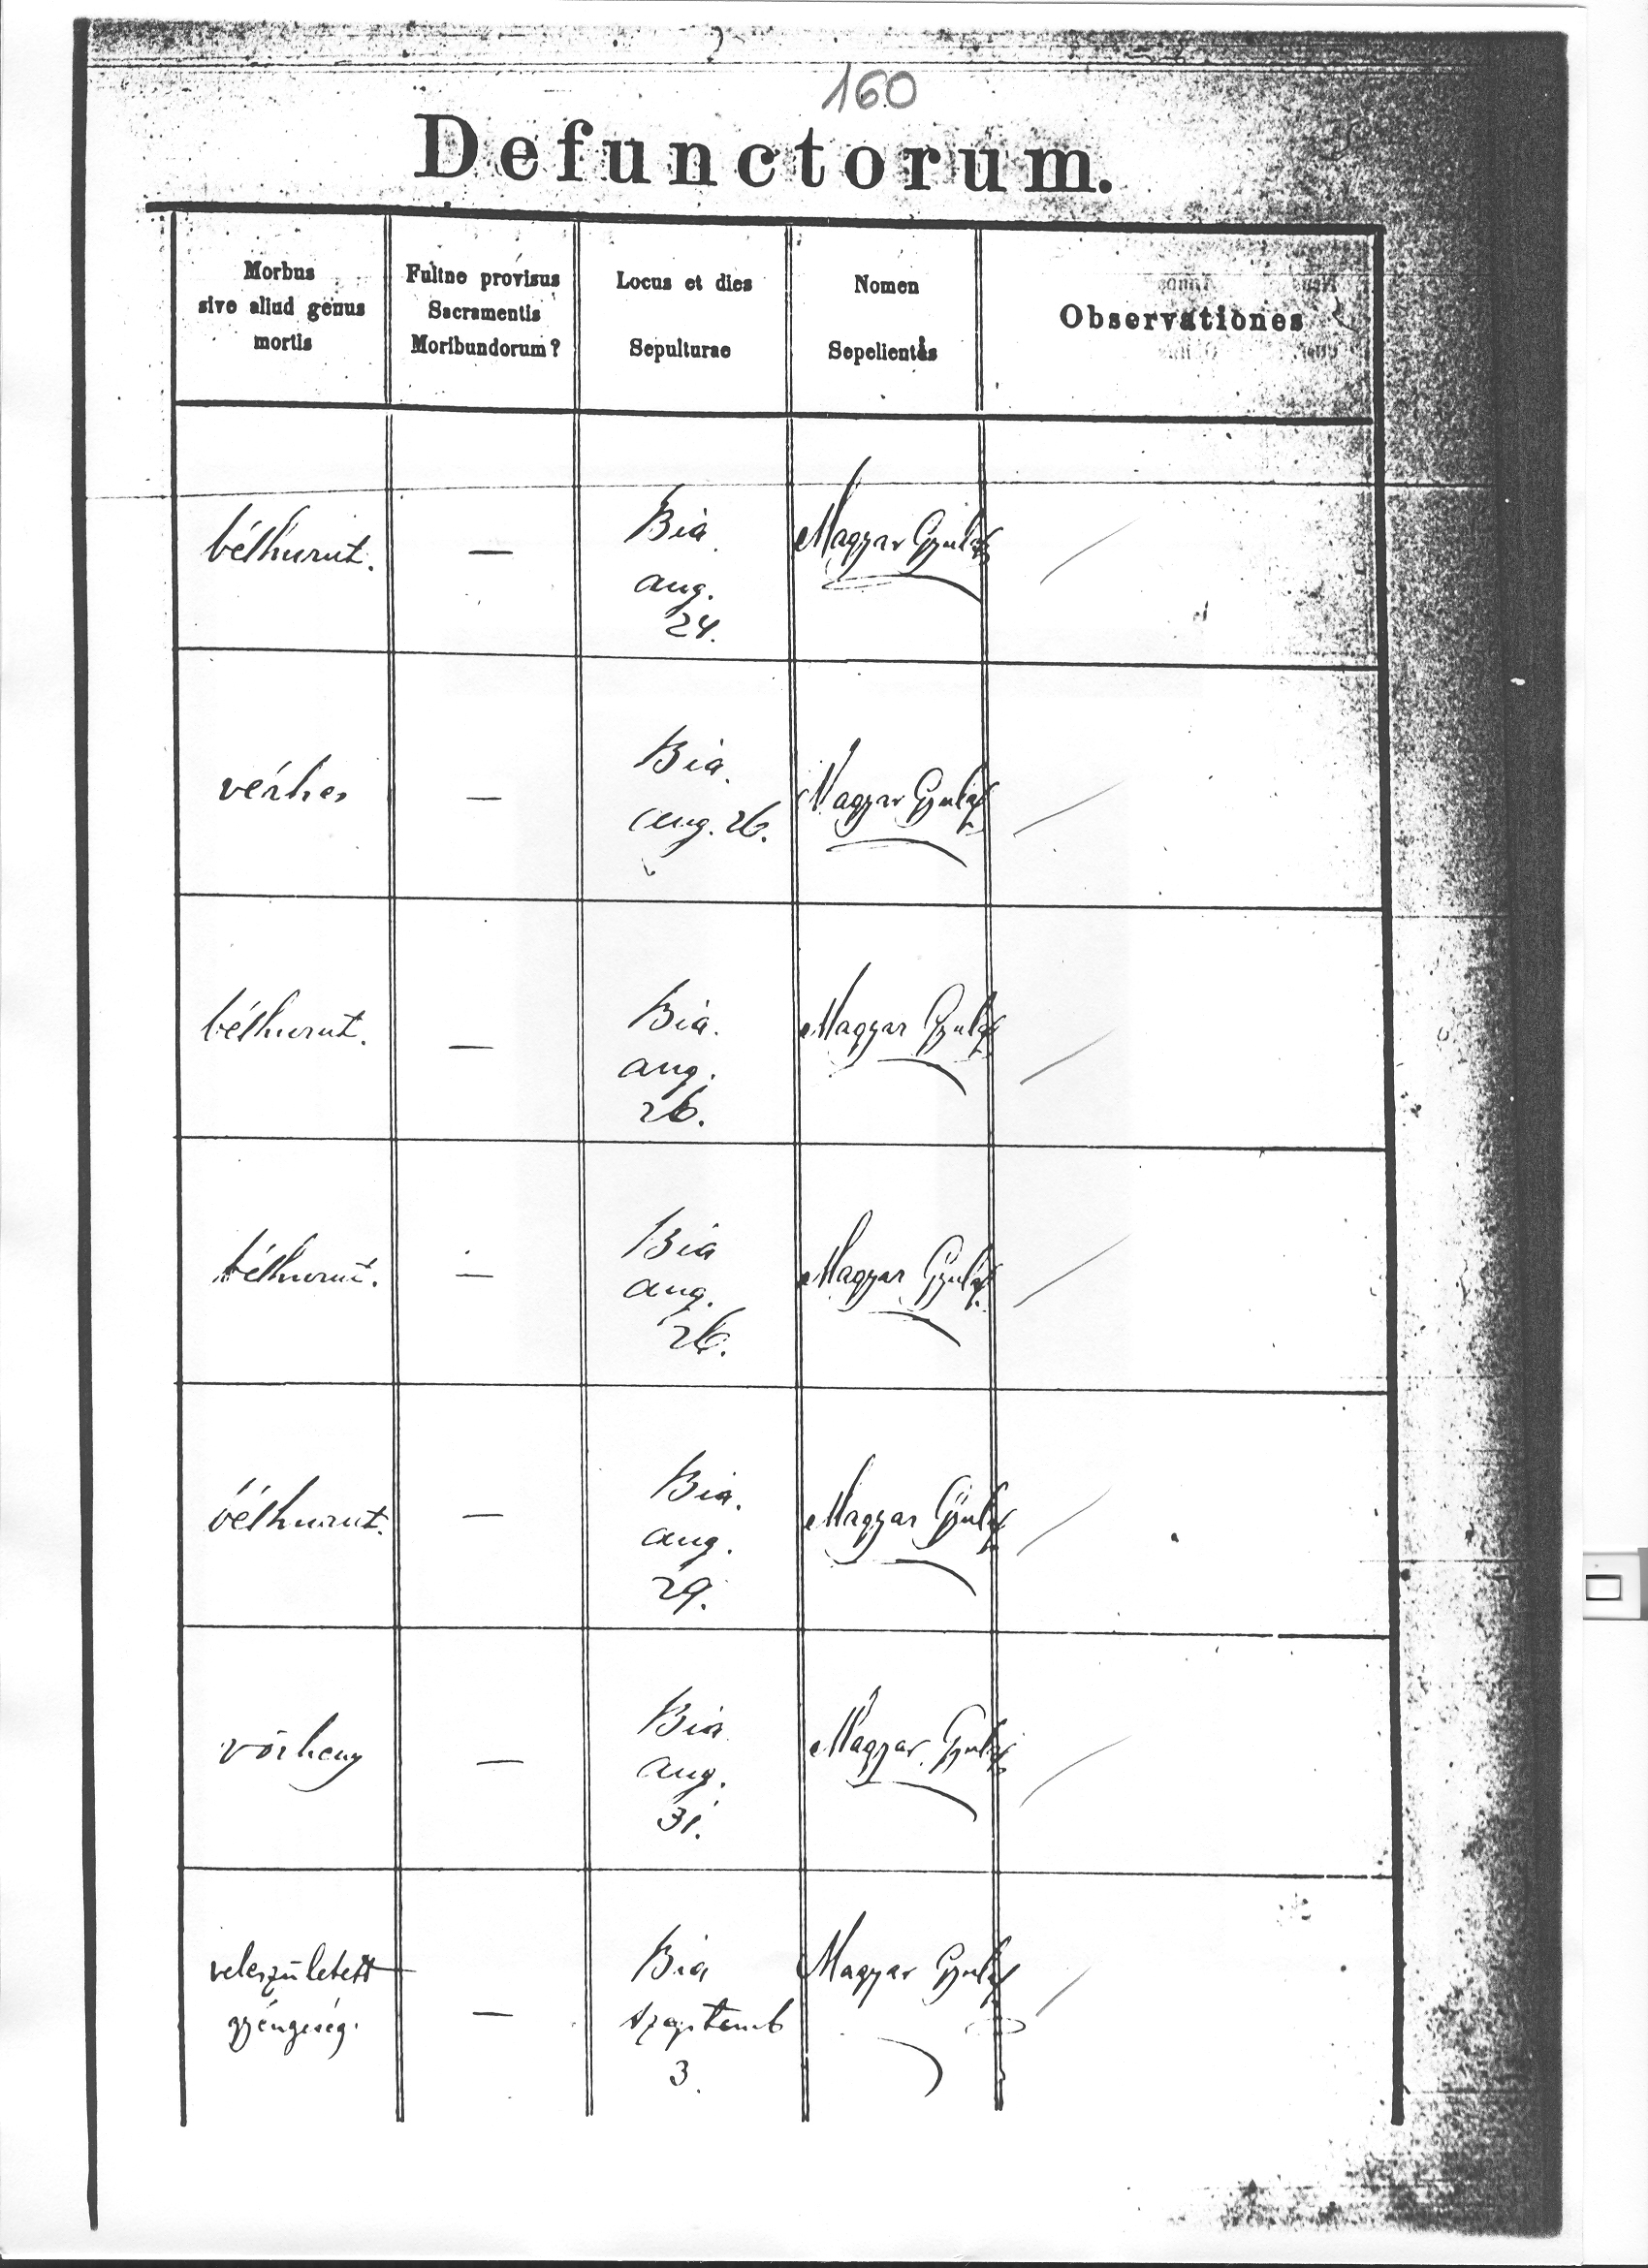 160
Defunctorum.
Morbus
sive aliud genus
mortis
Fuitne provisus
Sacramentis
Moribundorum?
Locus et dies
Sepulturae
Nomen
Sepelientis
Observationes
bélhurut.
—
Bia
aug.
24.
Magyar Gyula
vérhas
—
Bia.
aug. 26.
Magyar Gyula
bélhurut.
—
Bia.
aug.
26.
Magyar Gyula
bélhurut.
—
Bia
aug.
26.
Magyar Gyula
bélhurut.
—
Bia.
aug.
29.
Magyar Gyula
vörheny
—
Bia
aug.
31.
Magyar Gyula
veleszületett
gyengeség.
—
Bia
szeptemb
3.
Magyar Gyula